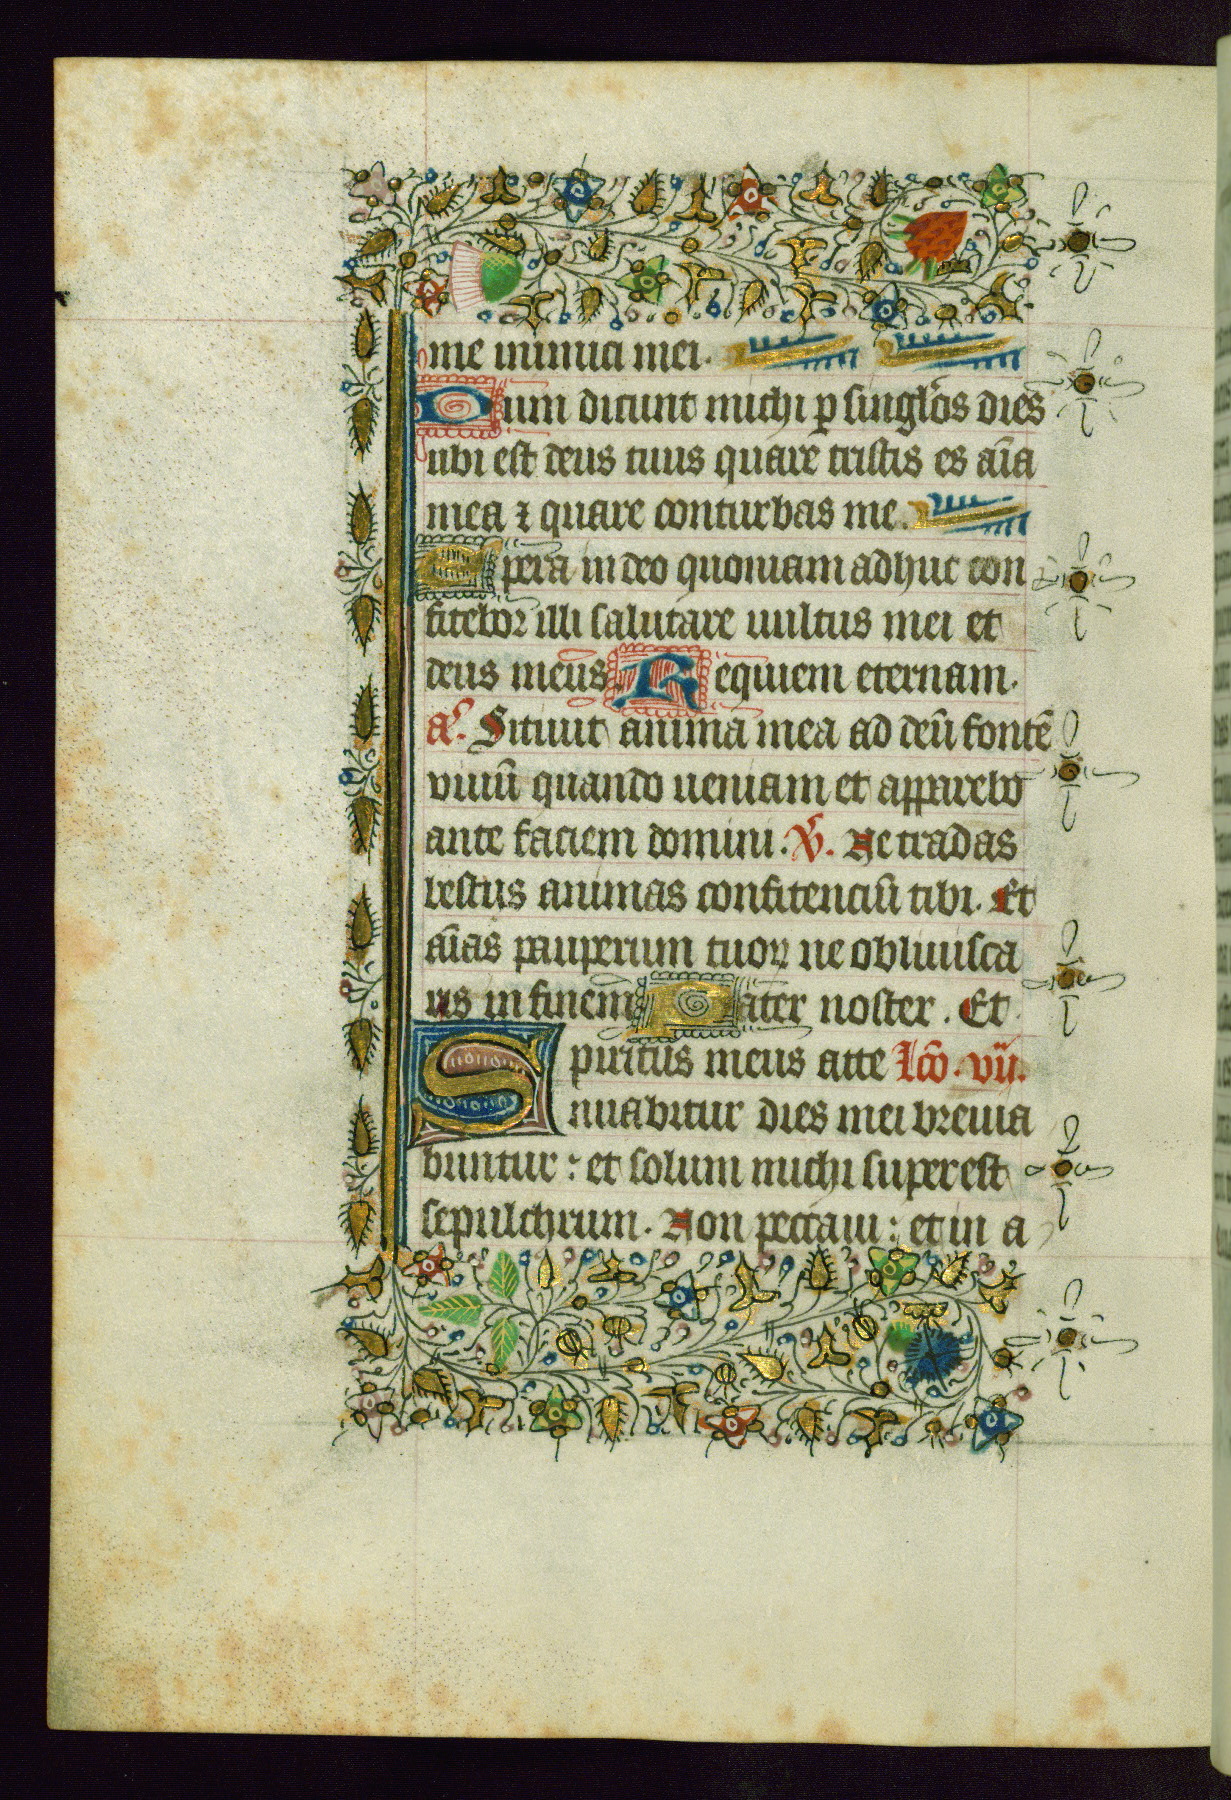 me inimici mei.
Dum dicunt michi ꝑ singl'os dies
ubi est deus tuus quare tristis es aīa
mea ⁊ quare conturbas me.
Spera in deo quoniam adhuc con
fitebor illi salutare uultus mei et
deus meus Requiem eternam.
aͬ. Sitiuit anima mea ad deū fontē
viuū quando ueniam et apparebo
ante faciem domini. V̾. Ne tradas
bestiis animas confitenciū tibi. Et
aīas pauperum tuoꝝ ne obliuisca
ris in finem Pater noster. Et
Spiritus meus atte Lcō. vij.
nuabitur dies mei breuia
buntur : et solum michi superest
sepulchrum. Non peccaui : et in a